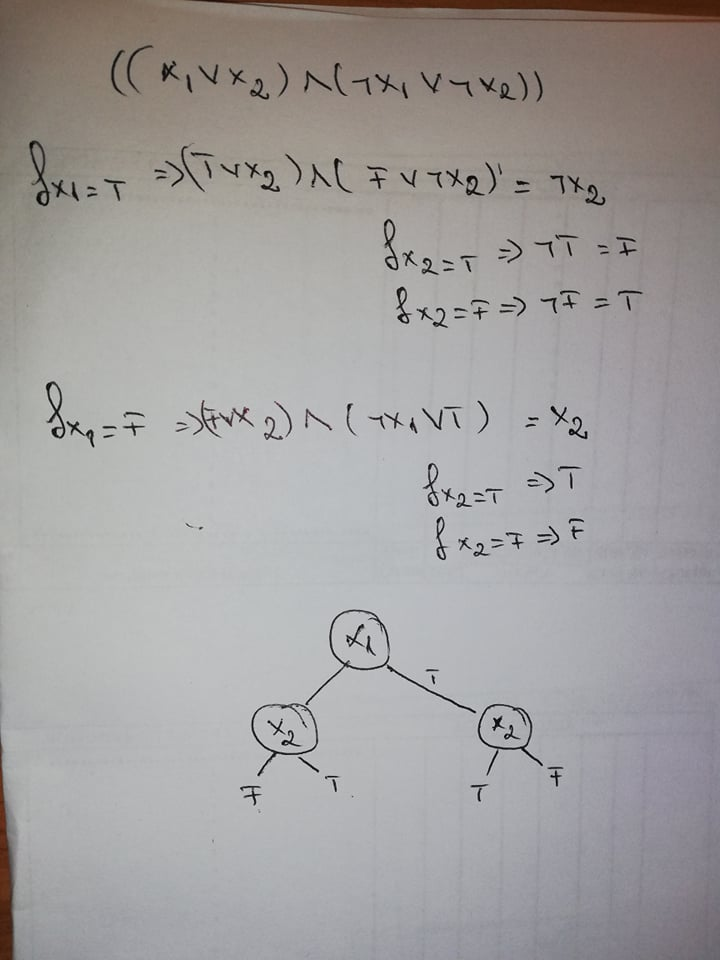 ((x₁∨x₂)∧(¬x₁∨¬x₂))
f x₁=T ⇒(T∨x₂)∧(F∨¬x₂) = ¬x₂
f x₂=T ⇒ ¬T = F
f x₂=F ⇒ ¬F = T
f x₁=F ⇒(F∨x₂)∧(¬x₁∨T) = x₂
f x₂=T ⇒ T
f x₂=F ⇒ F
x₁
T
x₂ x₂
F T T F